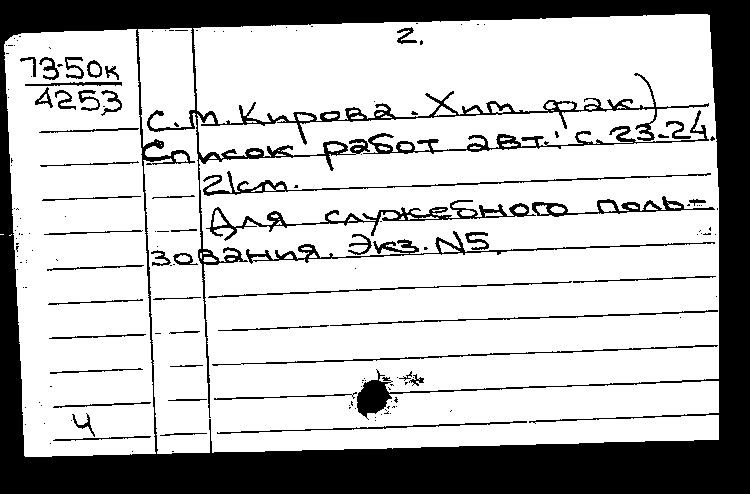 2.
73-50к
4253
с.м. Кирова. Хим. фак.)
Список работ авт.: с. 23-24.
21см.
Для служебного поль-
зования. Экз. N5.
Ч